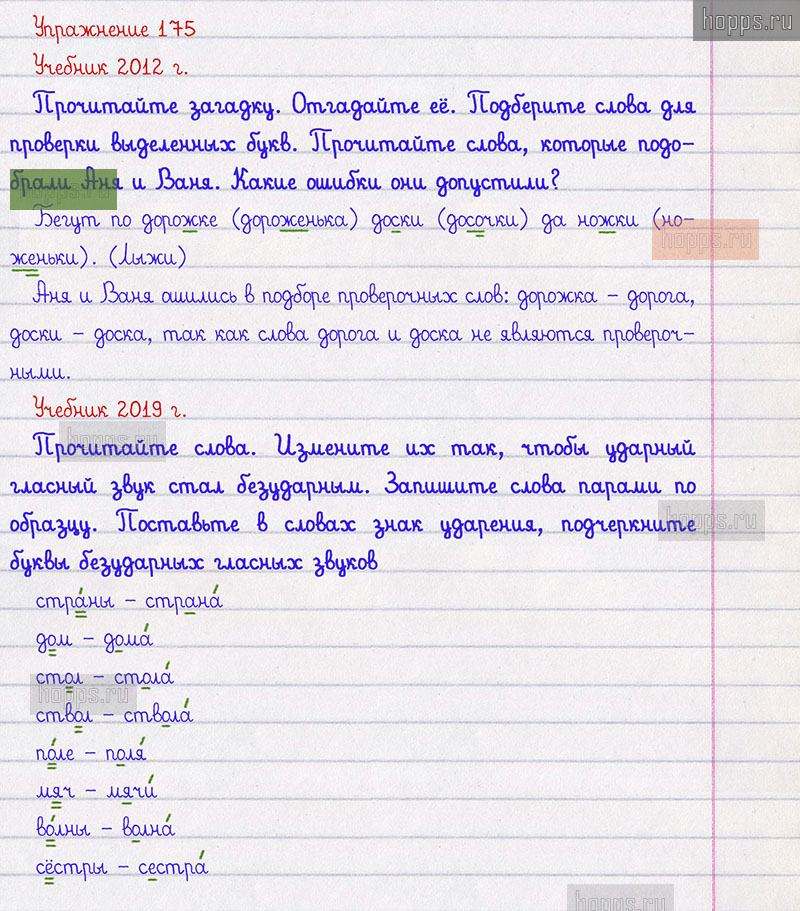 hopps.ru
Упражнение 175
Учебник 2012 г.
Прочитайте загадку. Отгадайте её. Подберите слова для
проверки выделенных букв. Прочитайте слова, которые подо-
брали Аня и Ваня. Какие ошибки они допустили?
Бегут по дорожке (дороженька) доски (досочки) да ножки (но-
женьки). (Лыжи)
hopps.ru
Аня и Ваня ашились в подборе проверочных слов: дорожка – дорога,
доски – доска, так как слова дорога и доска не являются провероч-
ными.
Учебник 2019 г.
hopps.ru
Прочитайте слова. Измените их так, чтобы ударный
гласный звук стал безударным. Запишите слова парами по
образцу. Поставьте в словах знак ударения, подчеркните
hopps.ru
буквы безударных гласных звуков
стра́ны – страна́
дом – дома́
стол – стола́
hopps.ru
ствол – ствола́
по́ле – поля́
мяч – мячи́
во́лны – волна́
сёстры – сестра́
hopps.ru